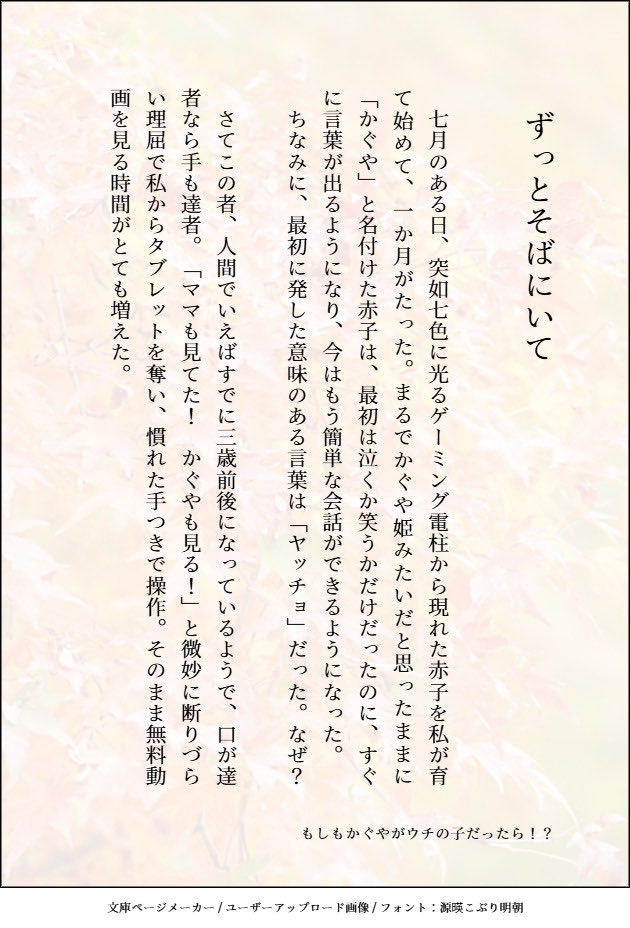 ずっとそばにいて
　七月のある日、突如七色に光るゲーミング電柱から現れた赤子を私が育
て始めて、一か月がたった。まるでかぐや姫みたいだと思ったままに
「かぐや」と名付けた赤子は、最初は泣くか笑うかだけだったのに、すぐ
に言葉が出るようになり、今はもう簡単な会話ができるようになった。
　ちなみに、最初に発した意味のある言葉は「ヤッチョ」だった。なぜ？
　さてこの者、人間でいえばすでに三歳前後になっているようで、口が達
者なら手も達者。「ママも見てた！　かぐやも見る！」と微妙に断りづら
い理屈で私からタブレットを奪い、慣れた手つきで操作。そのまま無料動
画を見る時間がとても増えた。
もしもかぐやがウチの子だったら！？
文庫ページメーカー / ユーザーアップロード画像 / フォント：源暎こぶり明朝